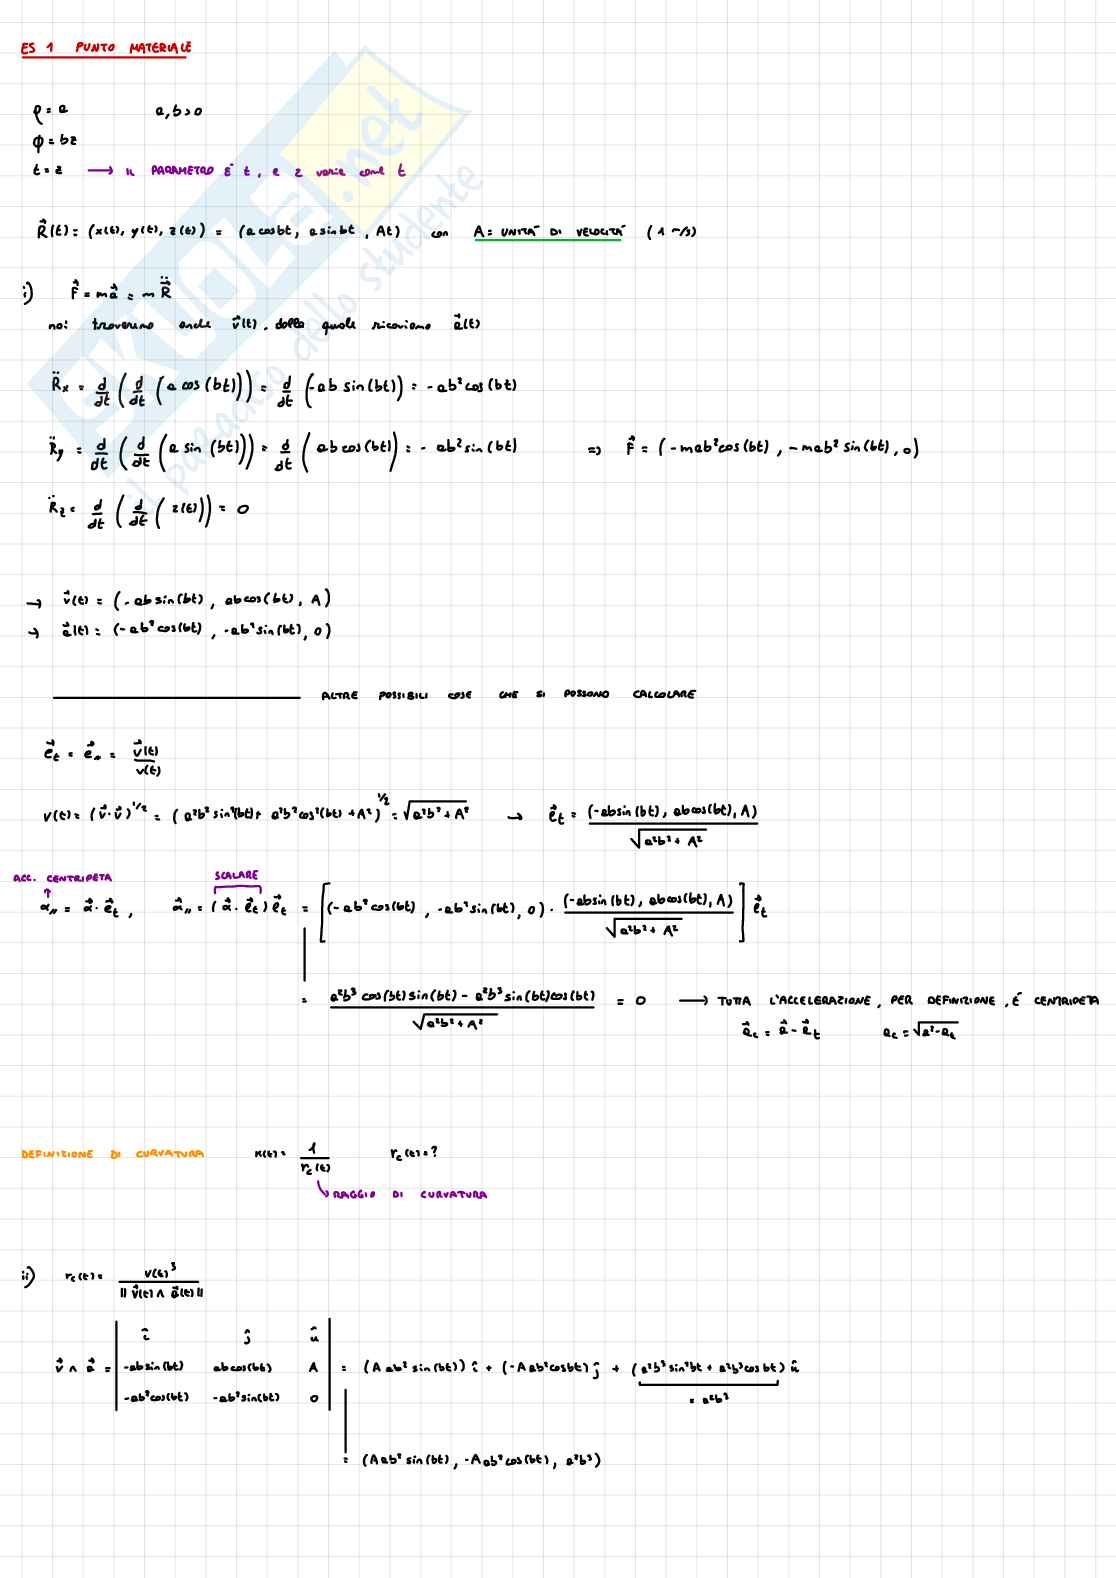 ES 1 PUNTO MATERIALE
ρ = a a, b > 0
φ = bz
t = z ⟶ IL PARAMETRO È t, e z varia come t
R⃗(t) = (x(t), y(t), z(t)) = (a cosbt, a sinbt, At) con A = UNITÀ DI VELOCITÀ (1 m/s)
i) F⃗ = ma⃗ = m R̈⃗
noi troveremo anche v⃗(t), dalla quale ricaviamo a⃗(t)
R̈x = d/dt (d/dt (a cos(bt))) = d/dt (-ab sin(bt)) = -ab² cos(bt)
R̈y = d/dt (d/dt (a sin(bt))) = d/dt (ab cos(bt)) = -ab² sin(bt) => F⃗ = (-mab²cos(bt), -mab² sin(bt), 0)
R̈z = d/dt (d/dt (z(t))) = 0
→ v⃗(t) = (-ab sin(bt), ab cos(bt), A)
→ a⃗(t) = (-ab² cos(bt), -ab² sin(bt), 0)
ALTRE POSSIBILI COSE CHE SI POSSONO CALCOLARE
e⃗t = e⃗// = v⃗(t)/v(t)
v(t) = (v⃗·v⃗)^1/2 = (a²b² sin²(bt) + a²b² cos²(bt) + A²)^1/2 = √(a²b² + A²) → e⃗t = (-absin(bt), abcos(bt), A)/√(a²b² + A²)
ACC. CENTRIPETA SCALARE
a// = a⃗·e⃗t, a⃗// = (a⃗·e⃗t) e⃗t = [(-ab² cos(bt), -ab² sin(bt), 0) · (-absin(bt), abcos(bt), A)/√(a²b² + A²)] e⃗t
= (a²b³ cos(bt) sin(bt) - a²b³ sin(bt)cos(bt))/√(a²b² + A²) = 0 ⟶ TUTTA L'ACCELERAZIONE, PER DEFINIZIONE, È CENTRIPETA
a⃗c = a⃗ - a⃗t ac = √(a² - at)
DEFINIZIONE DI CURVATURA κ(t) = 1/rc(t) rc(t) = ?
RAGGIO DI CURVATURA
ii) rc(t) = v(t)³/||v⃗(t) ∧ a⃗(t)||
î ĵ û
v⃗ ∧ a⃗ = | -absin(bt) abcos(bt) A | = (Aab² sin(bt)) î + (-Aab²cosbt) ĵ + (a²b³ sin²bt + a²b³cosbt) û
-ab²cos(bt) -ab²sin(bt) 0 = a²b³
= (Aab² sin(bt), -Aab² cos(bt), a²b³)
SKUOLA.net
il paradiso dello studente